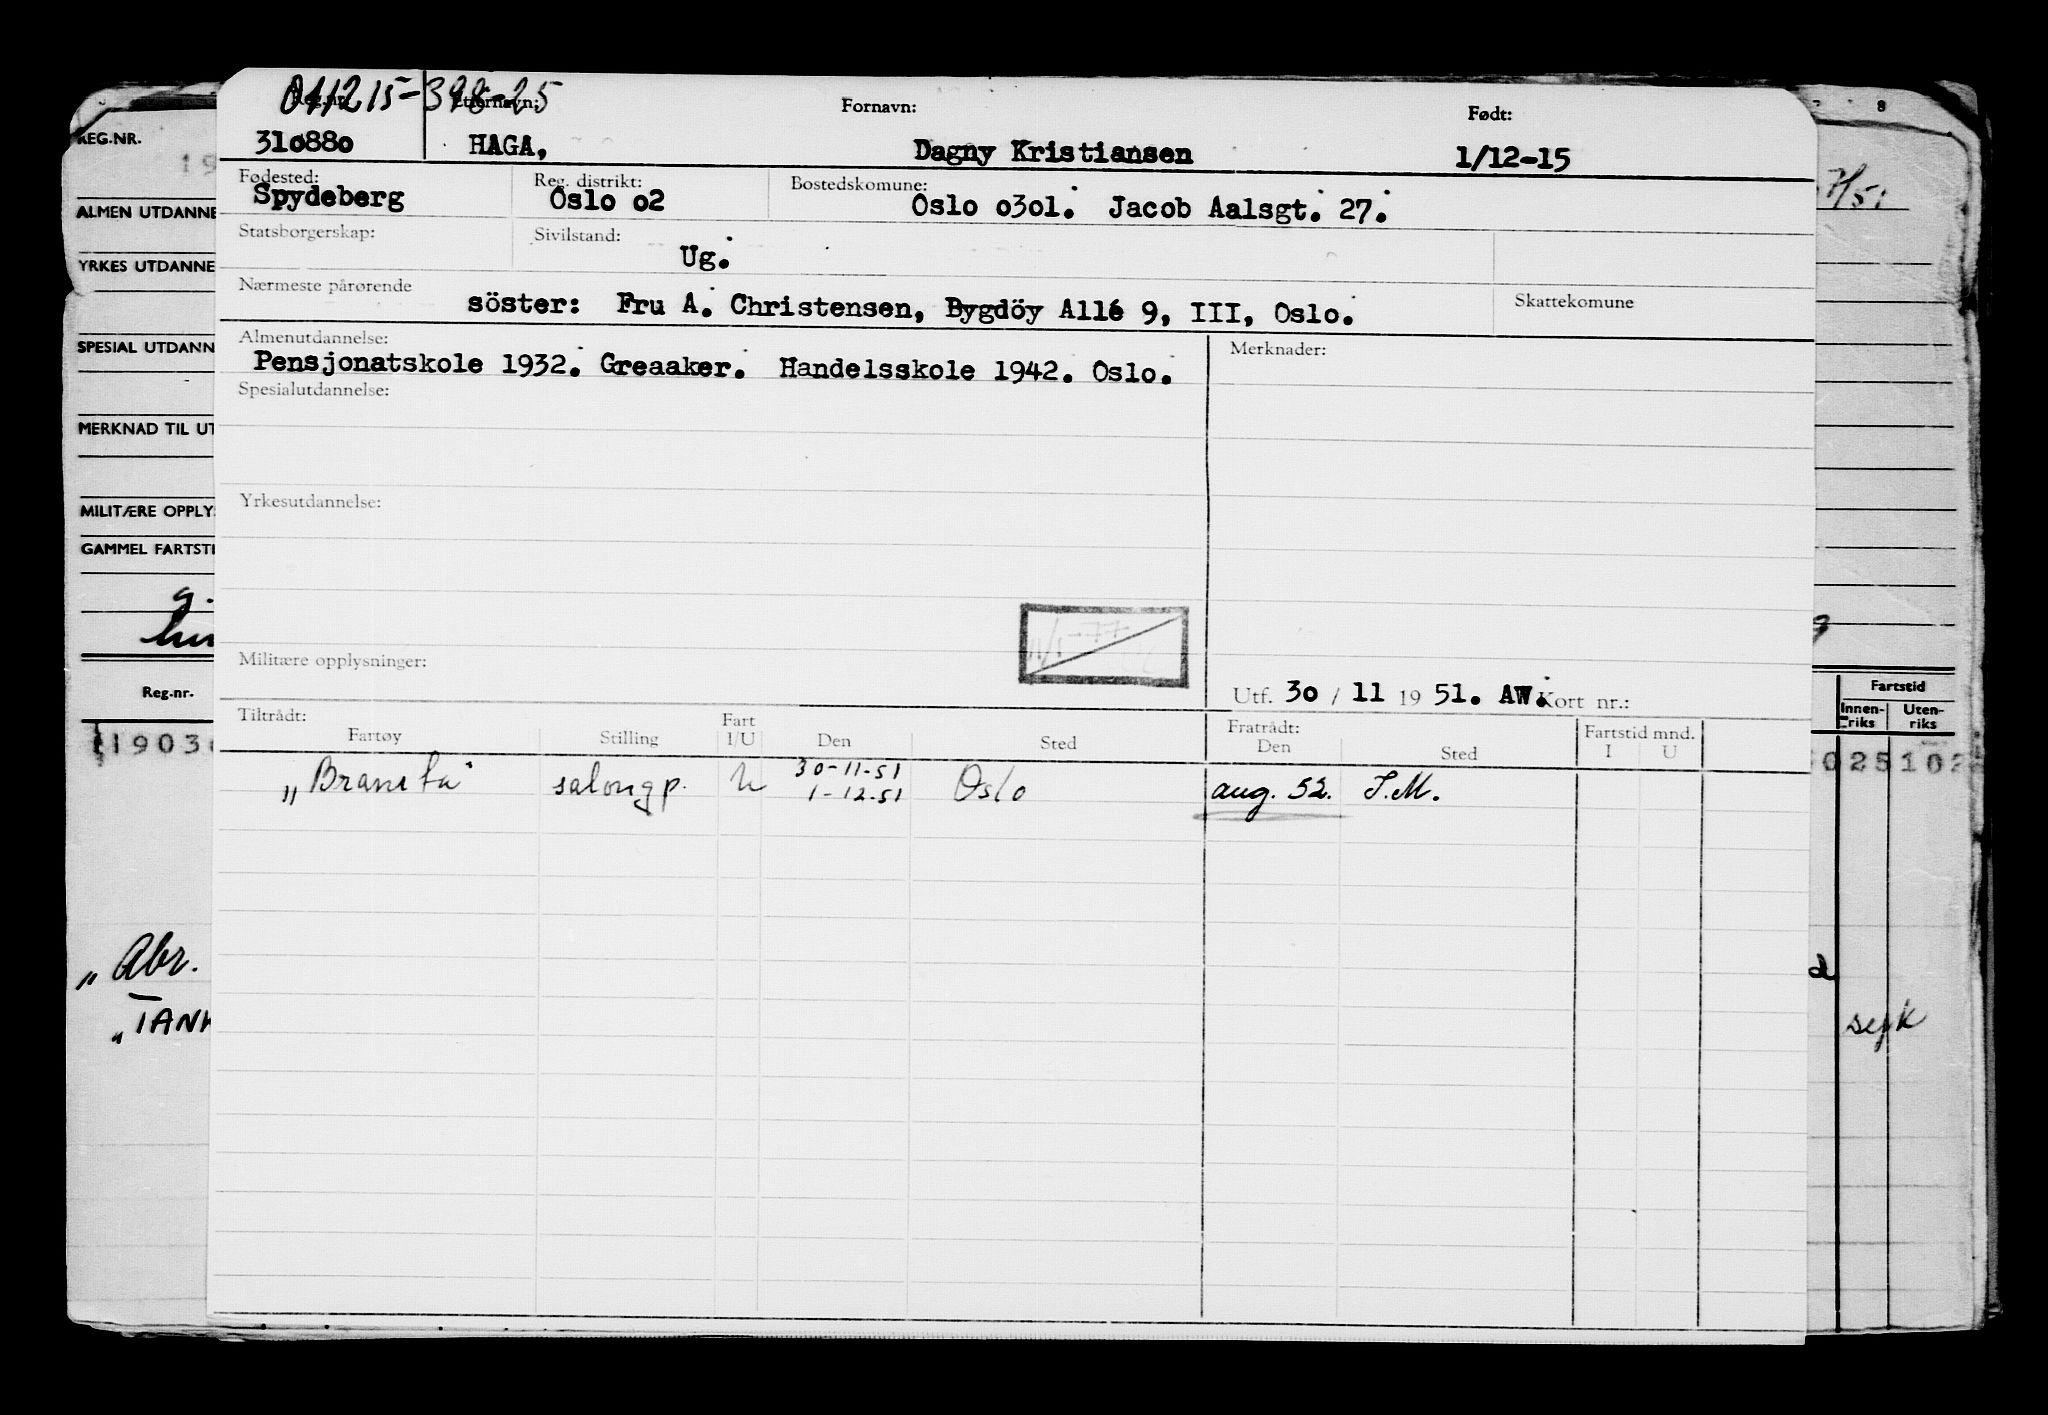 011215-398-25
Reg.nr. Etternavn: Fornavn: Født:
310880 HAGA, Dagny Kristiansen 1/12-15
Fødested: Reg. distrikt: Bostedskomune:
Spydeberg Oslo o2 Oslo o3o1. Jacob Aalsgt. 27.
Statsborgerskap: Sivilstand:
Ug.
Nærmeste pårørende Skattekomune
söster: Fru A. Christensen, Bygdöy Allé 9, III, Oslo.
Almenutdannelse: Merknader:
Pensjonatskole 1932. Greaaker. Handelsskole 1942. Oslo.
Spesialutdannelse:
Yrkesutdannelse:
11/1-77
Militære opplysninger:
Utf. 30 / 11 19 51. AW. Kort nr.:
Tiltrådt: Fratrådt: Fartstid mnd.
Fartøy Stilling Fart I/U Den Sted Den Sted I U
30-11-51
„Branita" salongp. U 1-12-51 Oslo aug. 52. S.M.
REG.NR. 8
19
7/51
ALMEN UTDANNE
YRKES UTDANNE
SPESIAL UTDANN
MERKNAD TIL UT
MILITÆRE OPPLYS
GAMMEL FARTSTI
g.
Reg.nr. Fartstid
Innen-riks Uten-riks
1903 025102
„Abr.
„TANK